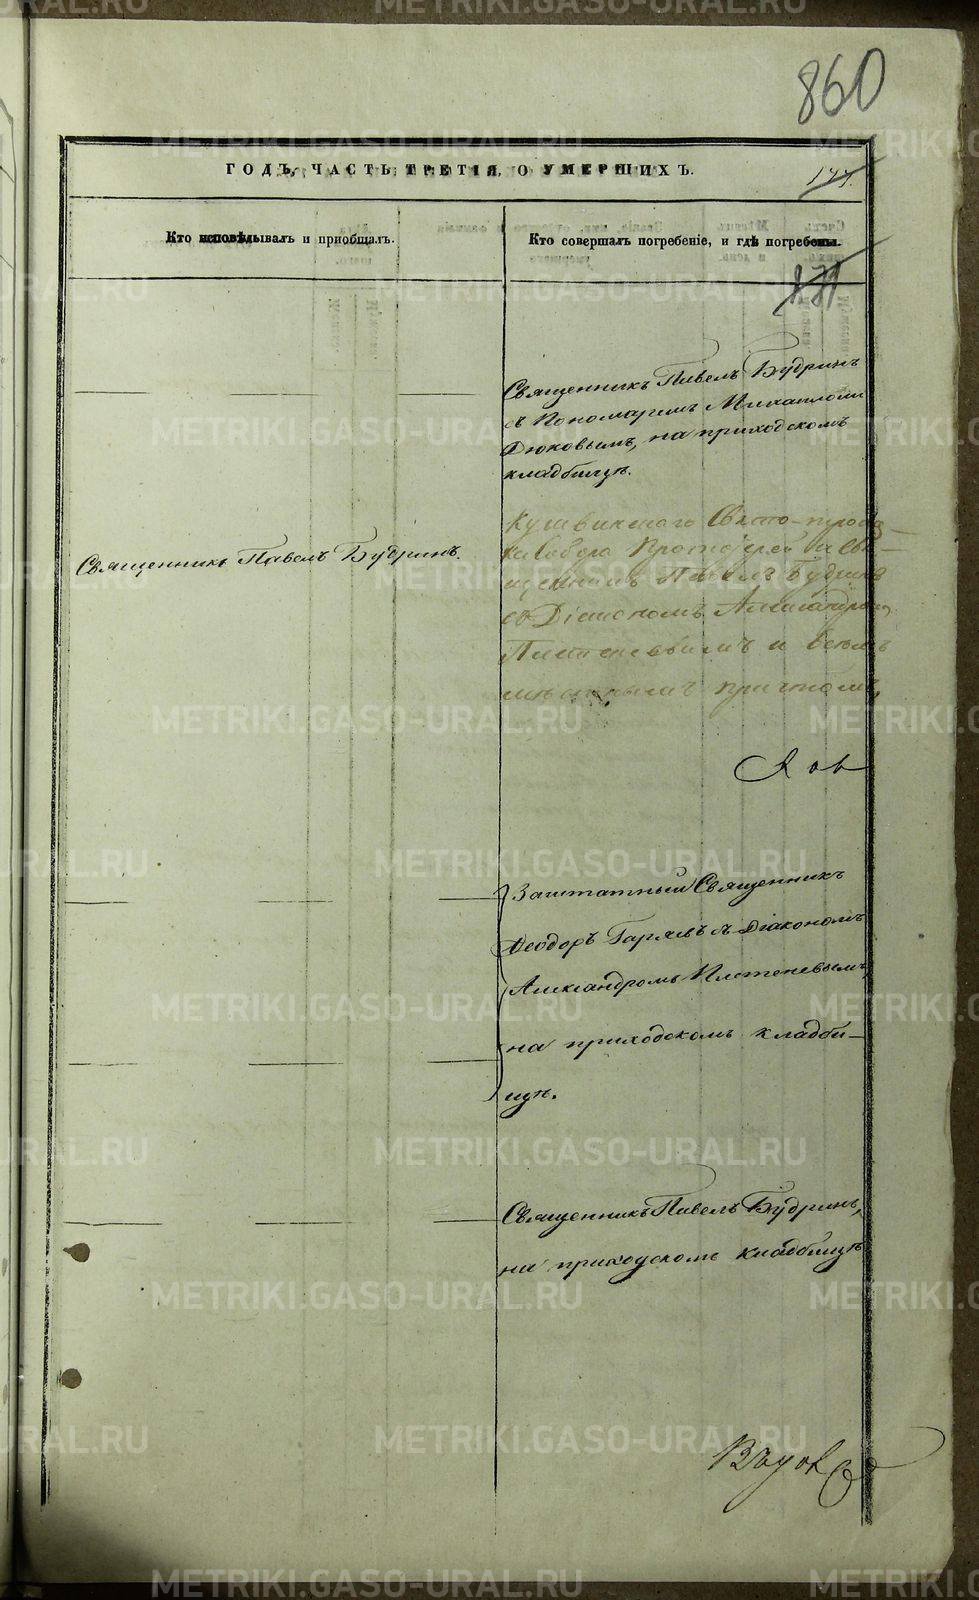 860
ГОДЪ, ЧАСТЬ ТРЕТІЯ, О УМЕРШИХЪ.
Кто исповѣдывалъ и пріобщалъ.
Кто совершалъ погребеніе, и гдѣ погребены.
Священникъ Павелъ Будринъ
съ Пономаремъ Михаиломъ
Дюковымъ, на приходскомъ
кладбищѣ.
Священникъ Павелъ Будринъ.
Кушвинскаго Свято-
Собора Протоіерей и Свя-
щенникъ Павелъ Будринъ
съ Діакономъ Александромъ
Плотеневымъ и всемъ
мѣстнымъ причтомъ,
Заштатный Священникъ
Ѳеодоръ Гаряевъ съ Діакономъ
Александромъ Плотеневымъ,
на приходскомъ кладби-
щѣ.
Священникъ Павелъ Будринъ,
на приходскомъ кладбищѣ
METRIKI.GASO-URAL.RU